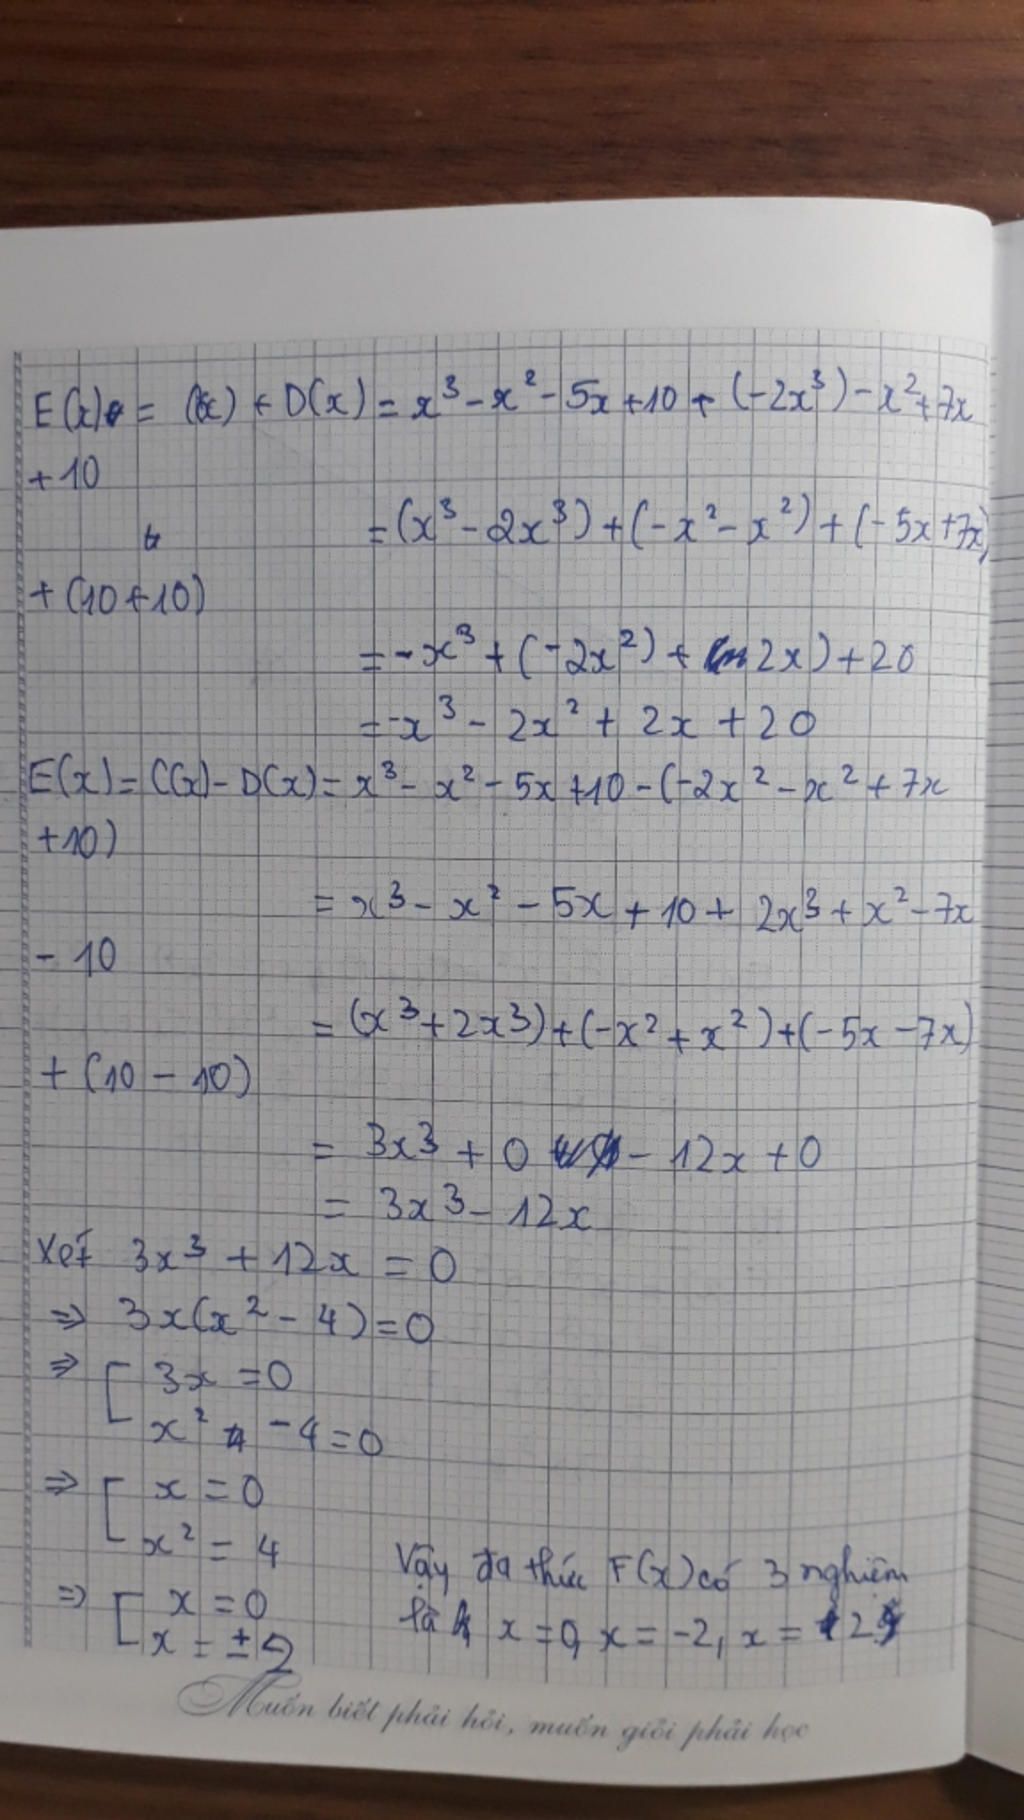 E(x) = C(x) + D(x) = x³ - x² - 5x + 10 + (-2x³) - x² + 7x
+ 10
= (x³ - 2x³) + (-x² - x²) + (-5x + 7x)
+ (10 + 10)
= -x³ + (-2x²) + 2x) + 20
= -x³ - 2x² + 2x + 20
E(x) = C(x) - D(x) = x³ - x² - 5x + 10 - (-2x² - x² + 7x
+ 10)
= x³ - x² - 5x + 10 + 2x³ + x² - 7x
- 10
= (x³ + 2x³) + (-x² + x²) + (-5x - 7x)
+ (10 - 10)
= 3x³ + 0 - 12x + 0
= 3x³ - 12x
Xét 3x³ + 12x = 0
=> 3x(x² - 4) = 0
=> [ 3x = 0
x² - 4 = 0
=> [ x = 0
x² = 4
=> [ x = 0
x = ± 2
Vậy đa thức F(x) có 3 nghiệm
là x = 0, x = -2, x = 2
Muốn biết phải hỏi, muốn giỏi phải học